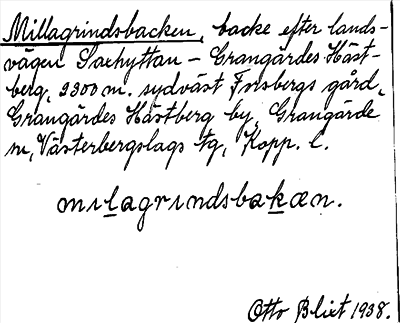 Millagrindsbacken, backe efter lands-
vägen Saxhyttan - Grangärdes Häst-
berg, 2300 m. sydväst Forsbergs gård,
Grangärdes Hästberg by, Grangärde
sn, Västerbergslags tg, Kopp. l.
milagrindsbakæn.
Otto Blixt 1938.